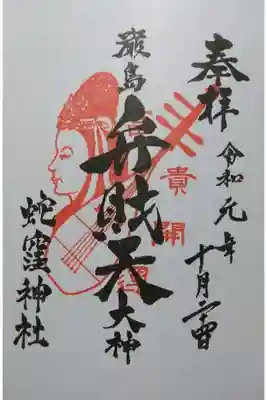 奉拝
令和元年
十月
巌島
弁財天
大神
貴
開
蛇窪神社